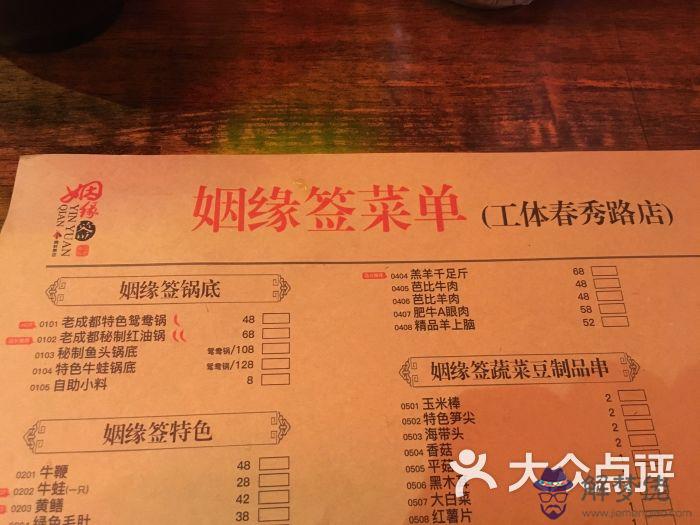 姻缘签
YIN YUAN
QIAN
姻缘签菜单 (工体春秀路店)
姻缘签锅底
0101 老成都特色鸳鸯锅 48
0102 老成都秘制红油锅 68
0103 秘制鱼头锅底 鸳鸯锅/108
0104 特色牛蛙锅底 鸳鸯锅/128
0105 自助小料 8
姻缘签特色
0201 牛鞭 48
0202 牛蛙(一只) 28
0203 黄鳝 42
0204 绿色毛肚 38
0404 羔羊千足斤 68
0405 芭比牛肉 48
0406 芭比羊肉 48
0407 肥牛A眼肉 58
0408 精品羊上脑 52
姻缘签蔬菜豆制品串
0501 玉米棒 2
0502 特色笋尖 2
0503 海带头 2
0504 香菇 2
0505 平菇
0506 黑木
0507 大白菜
0508 红薯片
大众点评
解梦佬
www.jiemenglao.com